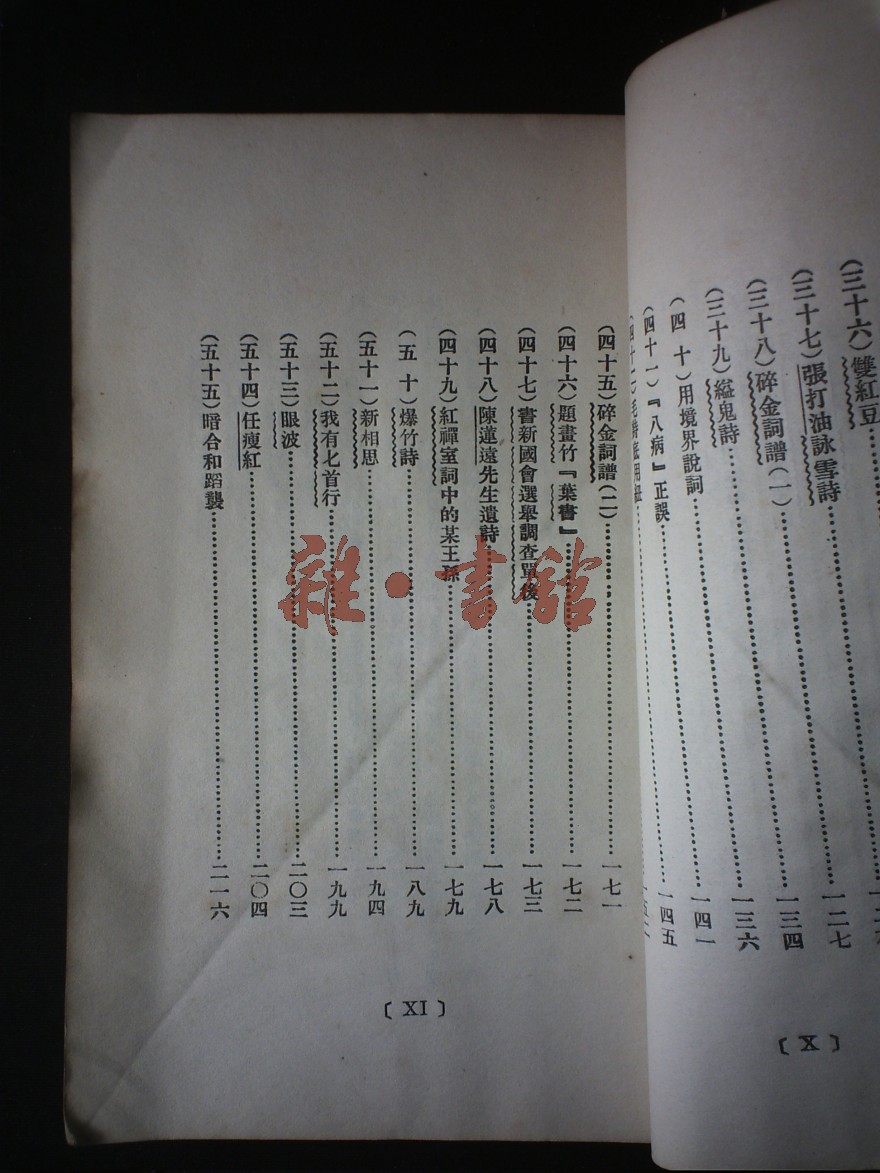 (三十六)雙紅豆
(三十七)張打油詠雪詩………一二七
(三十八)碎金詞譜(一)………一三四
(三十九)縊鬼詩………一三六
(四十)用境界說詞………一四一
(四十一)『八病』正誤………一四五
〔X〕
(四十五)碎金詞譜(二)………一七一
(四十六)題畫竹『葉書』………一七二
(四十七)書新國會選舉調查單後………一七三
(四十八)陳蓮遠先生遺詩………一七八
(四十九)紅禪室詞中的某王孫………一七九
(五十)爆竹詩………一八九
(五十一)新相思………一九四
(五十二)我有七首行………一九九
(五十三)眼波………二〇三
(五十四)任瘦紅………二〇四
(五十五)暗合和蹈襲………二一六
〔XI〕
雜·書館